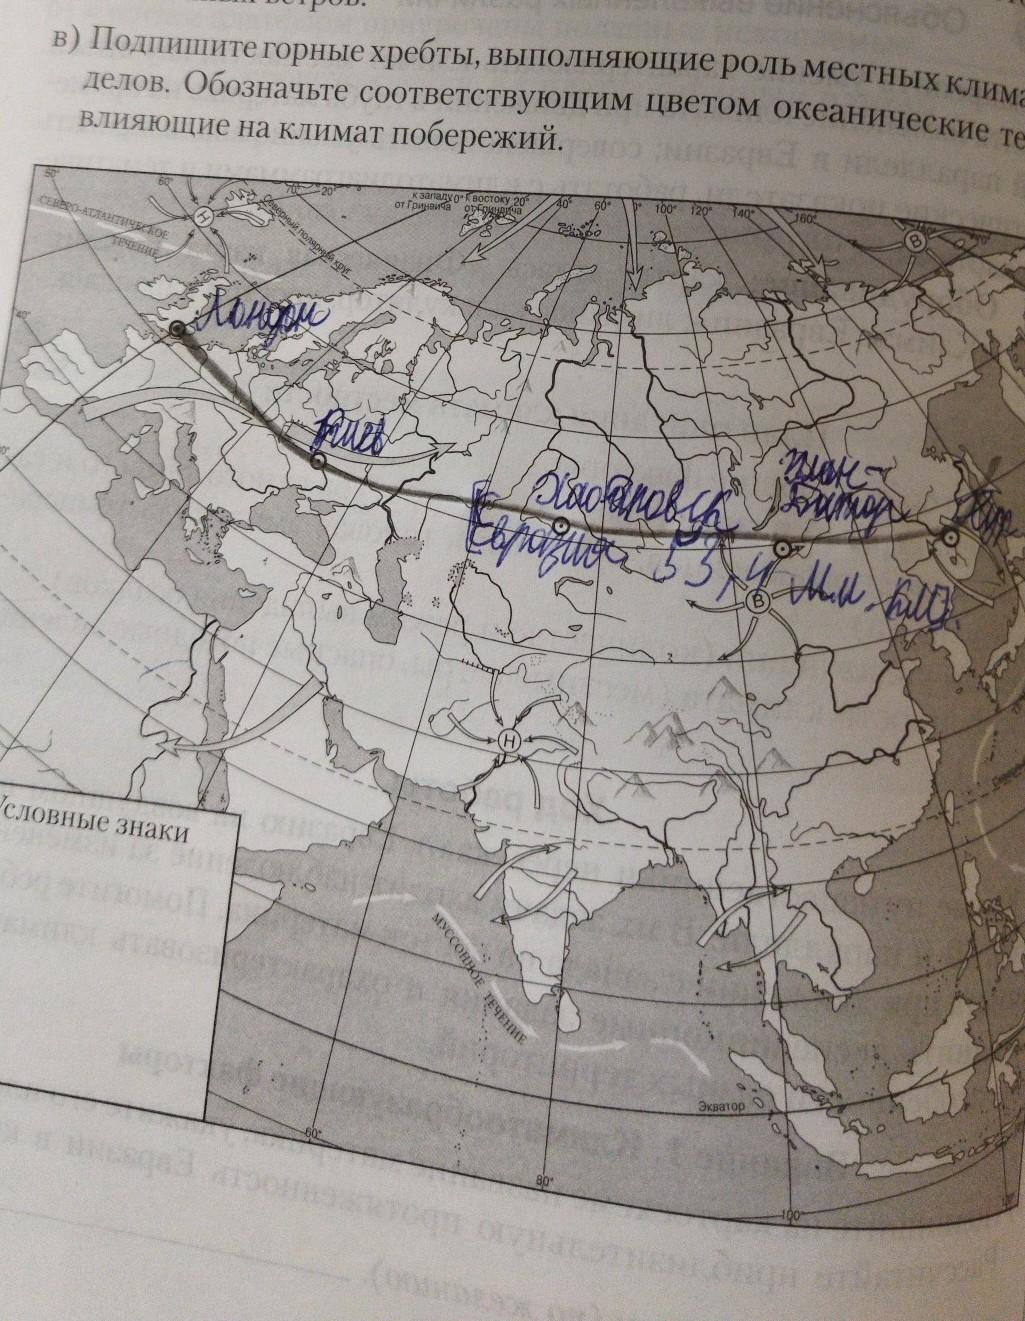 ветров.
в) Подпишите горные хребты, выполняющие роль местных клима
делов. Обозначьте соответствующим цветом океанические те
влияющие на климат побережий.
50° 60° 70° 20° к западу 0° к востоку 20° 40° 60° 80° 100° 120° 140° 160°
от Гринвича от Гринвича
СЕВЕРО-АТЛАНТИЧЕСКОЕ
ТЕЧЕНИЕ
Северный полярный круг
Н
В
40°
Лондон
Киев
Хабаровск
Улан-
Батор
Евразия 53,4 млн. км2.
В
Н
Условные знаки
МУССОННОЕ ТЕЧЕНИЕ
Экватор
60°
80°
100°